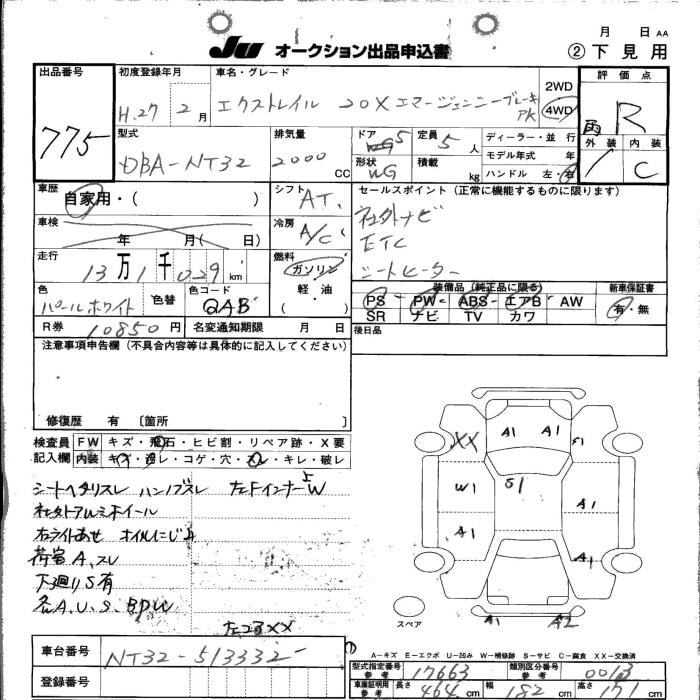 月 日 AA
JU オークション出品申込書 ② 下見用
出品番号 775
初度登録年月 H.27 2月
車名・グレード エクストレイル 20X エマージェンシーブレーキPK
2WD
4WD
評価点 R
外装 内装 C
型式 DBA-NT32
排気量 2000 CC
ドア 5
形状 WG
定員 5 人
積載 kg
ディーラー・並行
モデル年式 年
ハンドル 左・右
車歴 自家用・( )
シフト AT.
セールスポイント(正常に機能するものに限ります)
社外ナビ
ETC
シートヒーター
車検 年 月( 日)
冷房 A/C
走行 13万1千029km
燃料 ガソリン
軽・油
色 パールホワイト
色替
色コード QAB
装備品(純正品に限る)
PS PW ABS エアB AW
SR ナビ TV カワ
新車保証書
有・無
R券 10850円
名変通知期限 月 日
後日品
注意事項申告欄(不具合内容等は具体的に記入してください)
修復歴 有 〔箇所 〕
検査員 FW キズ・飛石・ヒビ割・リペア跡・X要
記入欄 内装 キズ・汚レ・コゲ・穴・スレ・キレ・破レ
シートヘタリスレ ハンドルスレ 左Fインナー W
社外アルミホイール
右ライトあせ オイルにじみ
荷室A、スレ
下廻りS有
各A.U.S.BPW
左コアXX
XX A1 A1 S1
W1 G1 A1
A1 A1
A1 A2
スペア
車台番号 NT32-513332
登録番号
A-キズ E-エクボ U-凹み W-補修跡 S-サビ C-腐食 XX-交換済
型式指定番号 参考 17663
類別区分番号 参考 0013
車庫証明用 参考 長さ 464 cm 幅 182 cm 高さ 171 cm